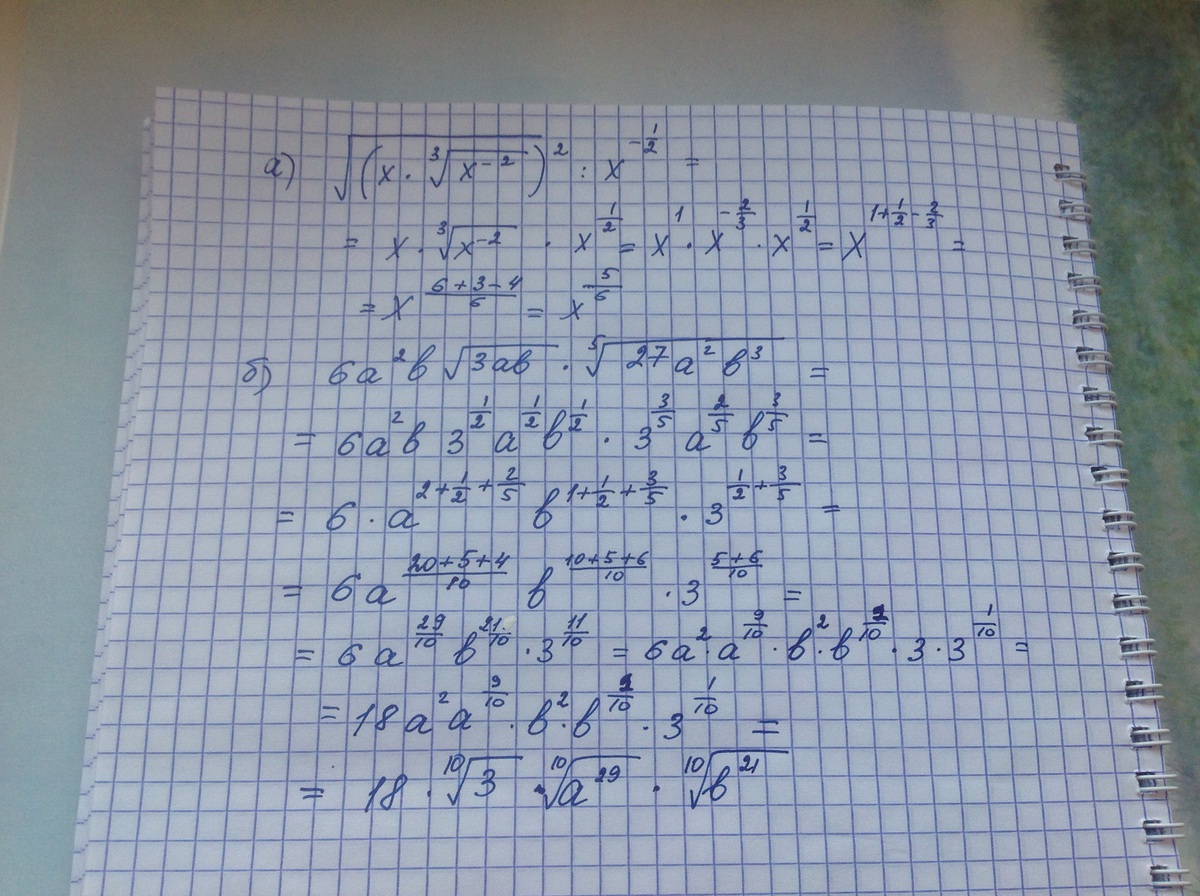 а) √((x · ∛(x⁻²))² : x^(-1/2) =
= x · ∛(x⁻²) · x^(1/2) = x¹ · x^(-2/3) · x^(1/2) = x^(1+1/2-2/3) =
= x^((6+3-4)/6) = x^(5/6)
б) 6a²b √(3ab) · ⁵√(27a²b³) =
= 6a²b 3^(1/2) a^(1/2) b^(1/2) · 3^(3/5) a^(2/5) b^(3/5) =
= 6 · a^(2+1/2+2/5) b^(1+1/2+3/5) · 3^(1/2+3/5) =
= 6a^((20+5+4)/10) b^((10+5+6)/10) · 3^((5+6)/10) =
= 6a^(29/10) b^(21/10) · 3^(11/10) = 6a² · a^(9/10) · b² · b^(/10) · 3 · 3^(1/10) =
= 18a²a^(9/10) · b² · b^(/10) · 3^(1/10) =
= 18 · ¹⁰√3 · ¹⁰√(a²⁹) · ¹⁰√(b²¹)